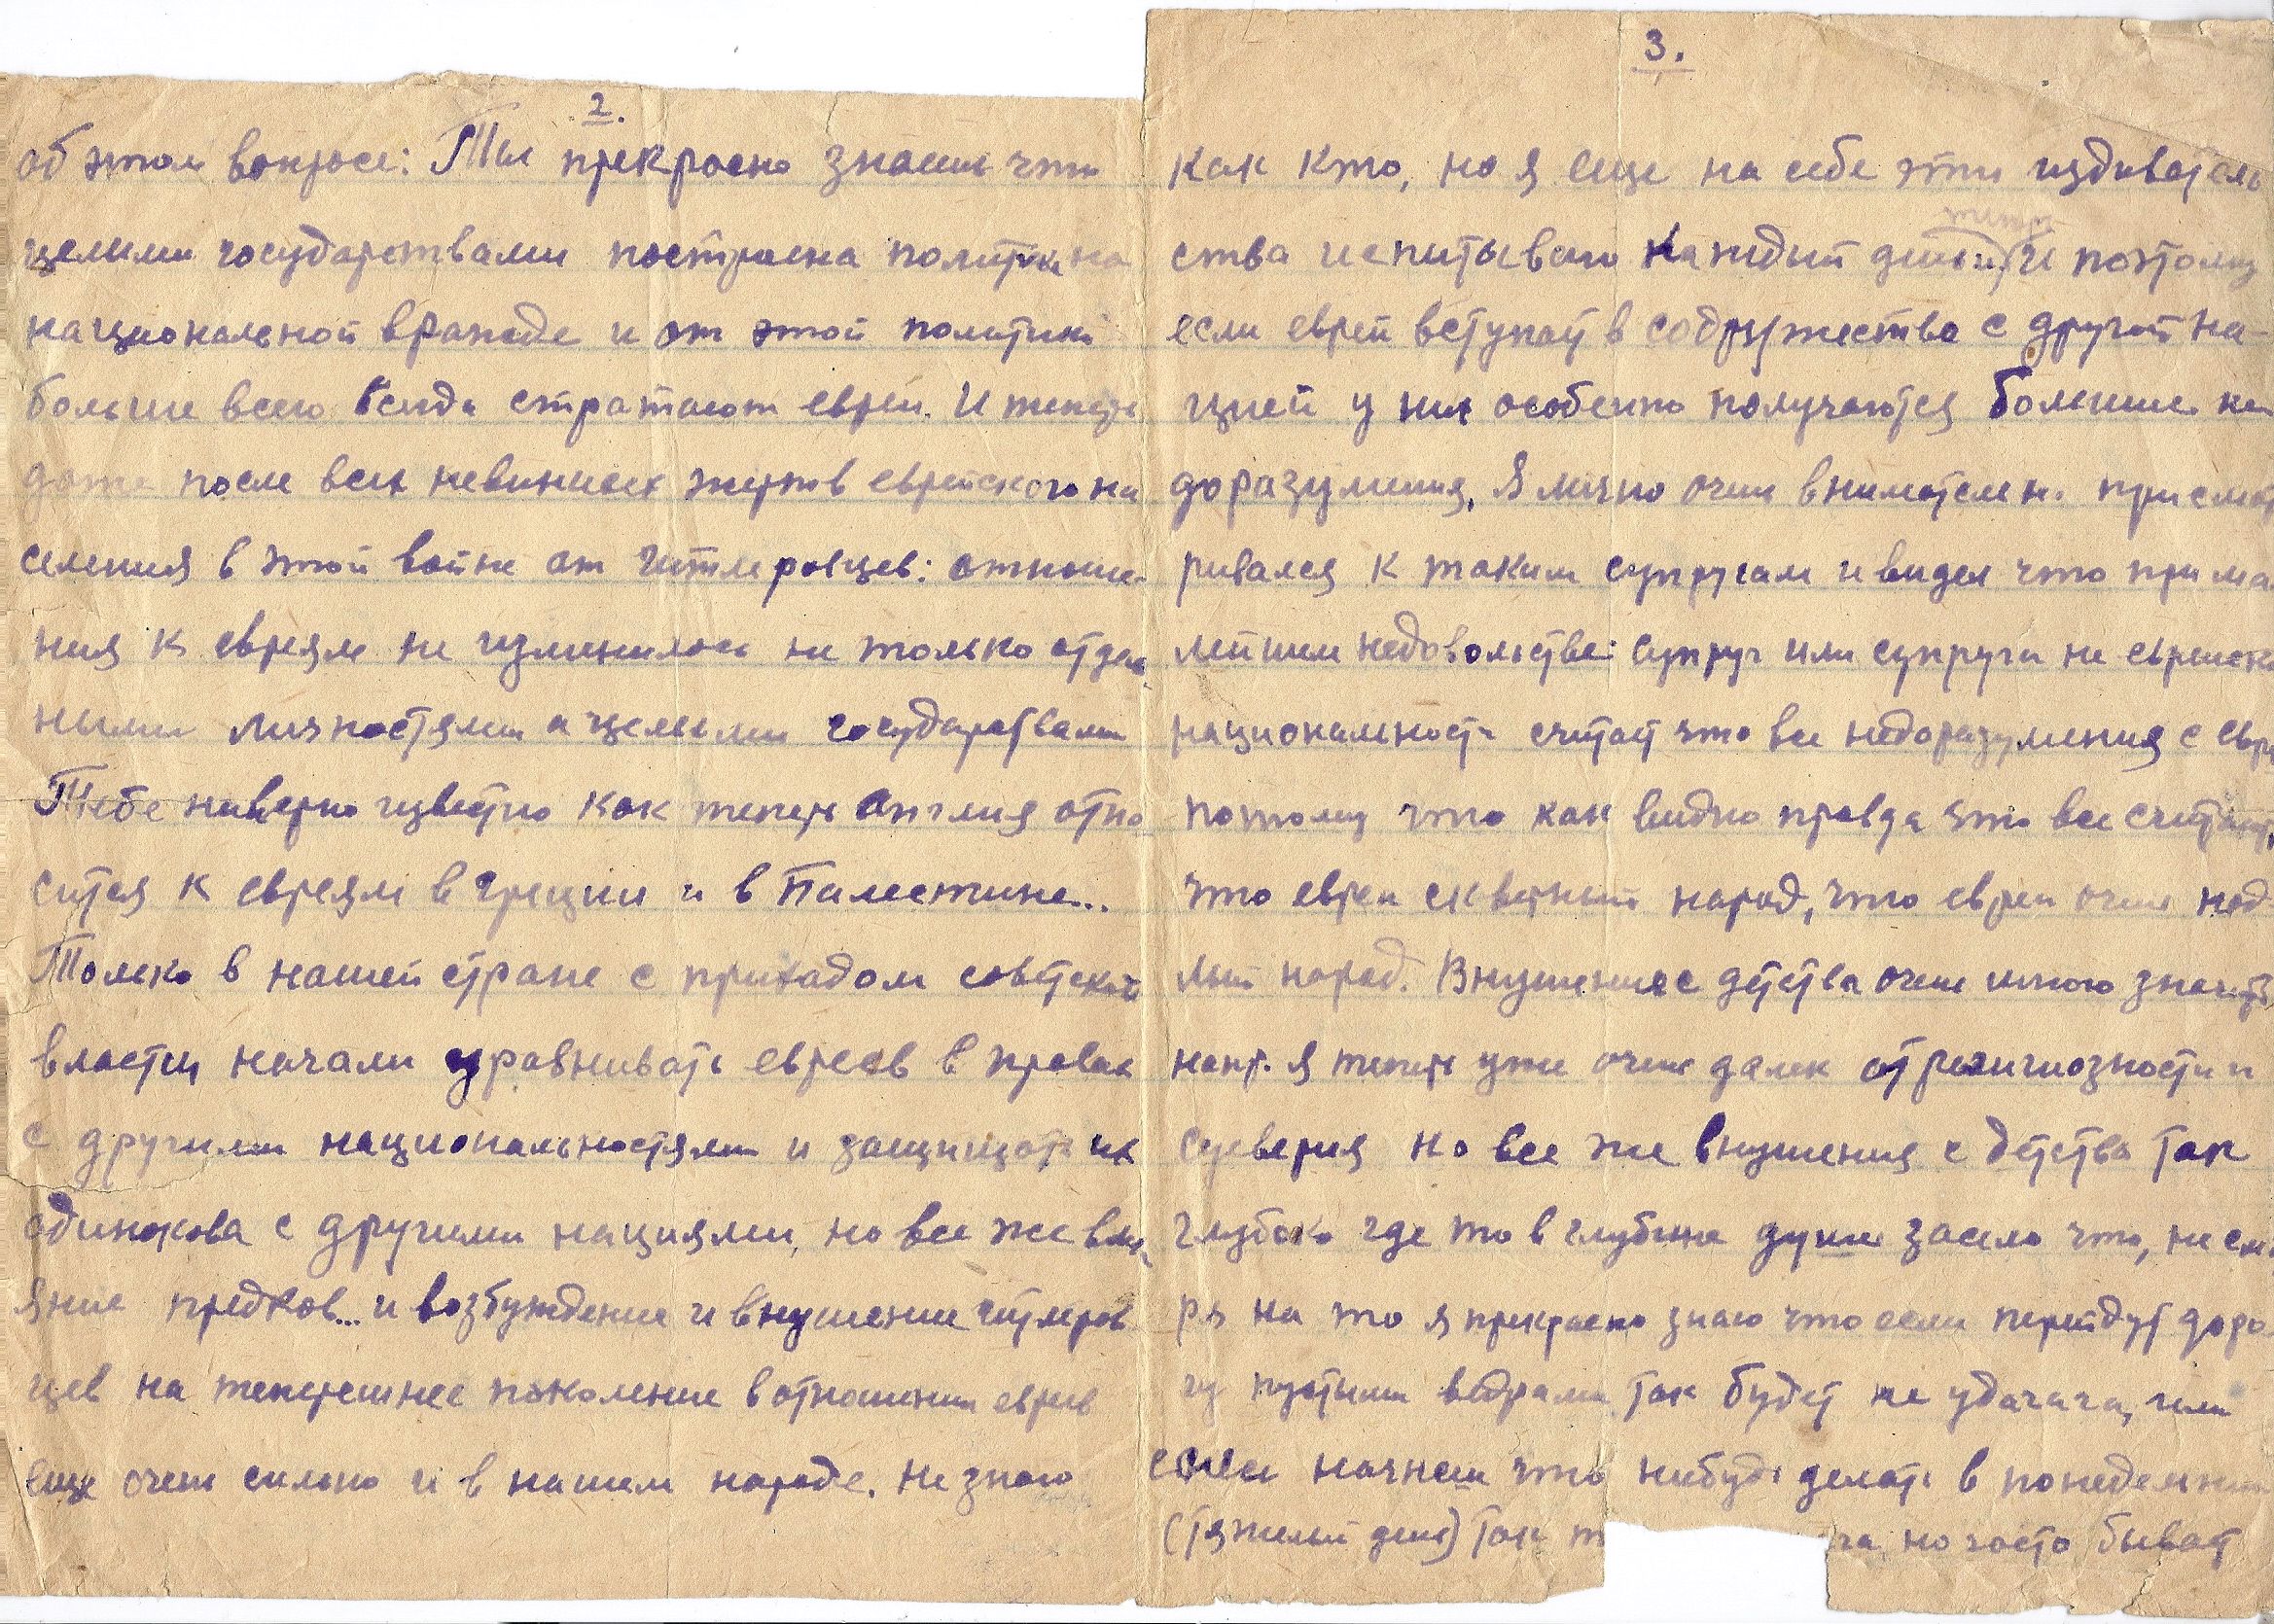 2.
об этом вопросе: Ты прекрасно знаешь что
целыми государствами построена политика на
национальной вражде и от этой политики
больше всего всегда стратают евреи. И теперь
даже после всех невинных жертв еврейского на
селения в этой войне от гитлеровцев: отноше-
ния к евреям не изменилось не только отдел
ными личностями а целыми государствами
Тебе наверно известно как теперь Англия отно
сится к евреям в Греции и в Палестине...
Только в нашей стране с приходом советской
власти начали уравнивать евреев в правах
с другими национальностями и защищать их
одинокова с другими нациями, но все же вли-
яние предков... и возбуждение и внушение гитлеров
цев на теперешнее поколение в отношении евреев
еще очень сильно и в нашем народе. Не знаю
3.
как кто, но я еще на себе эти издеватель
ства испытываю каждый день и поэтому
если еврей вступает в содружество с другой на-
цией у них особенно получаются большие не
доразумения. Я лично очень внимательн. присмат
ривался к таким супругам и видел что при ма
лейшем недовольстве: супруг или супруга не еврейск
национальности считает что все недоразумения с евре
потому что как видно правда это все считают,
что евреи скверный народ, что евреи очень под
лый народ. Внушение с детства очень много значит
напр. я теперь уже очень далек от религиозности и
суеверия но все же внушения с детства так
глубоко где то в глубине души засело что, не смо
ря на то я прекрасно знаю что если перейдут доро
гу пустыми ведрами так будет не удачача, или
если начнеш что нибудь делать в понедельник
(тяжелый день) так ча, но часто бывает